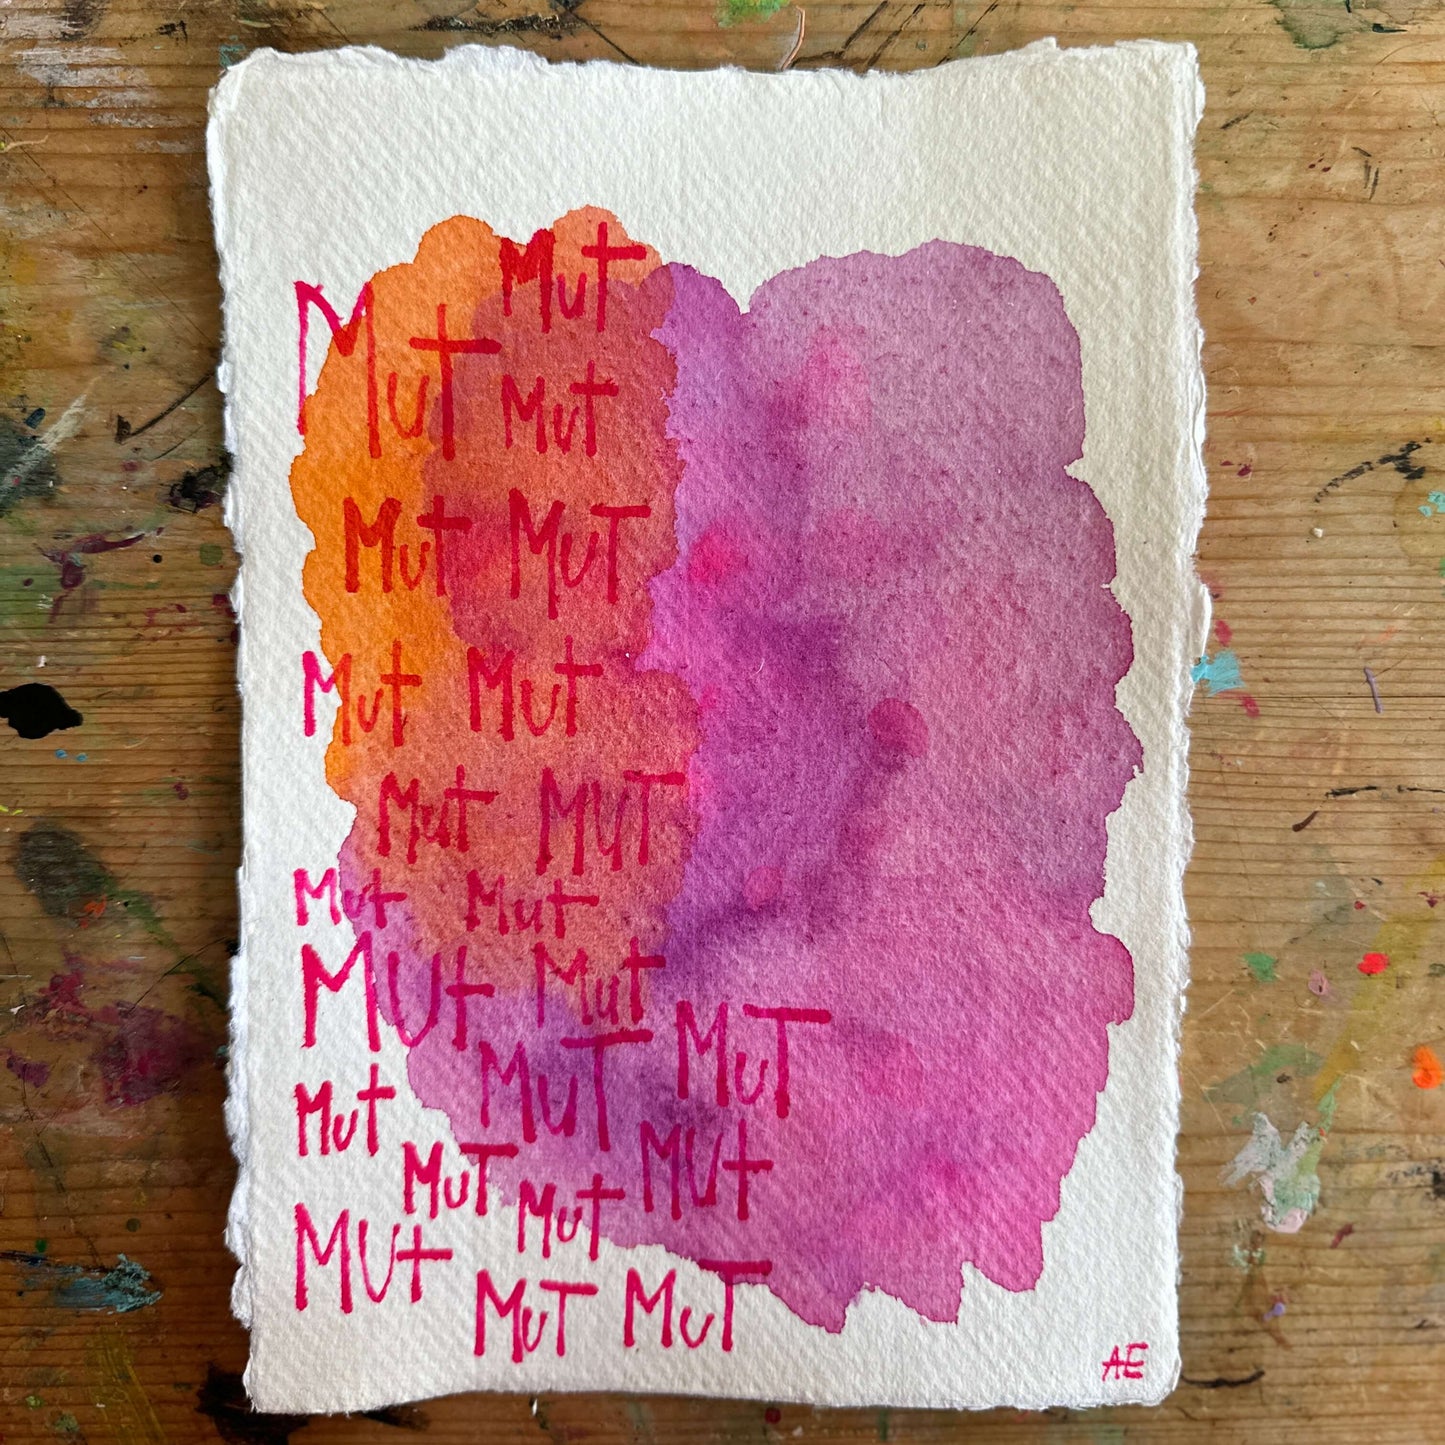 Mut
Mut
Mut
Mut MuT
Mut Mut
Mut MUT
Mut Mut
MUt Mut
MuT MuT
Mut MUt
MuT Mut
MUt
MuT MuT
AE